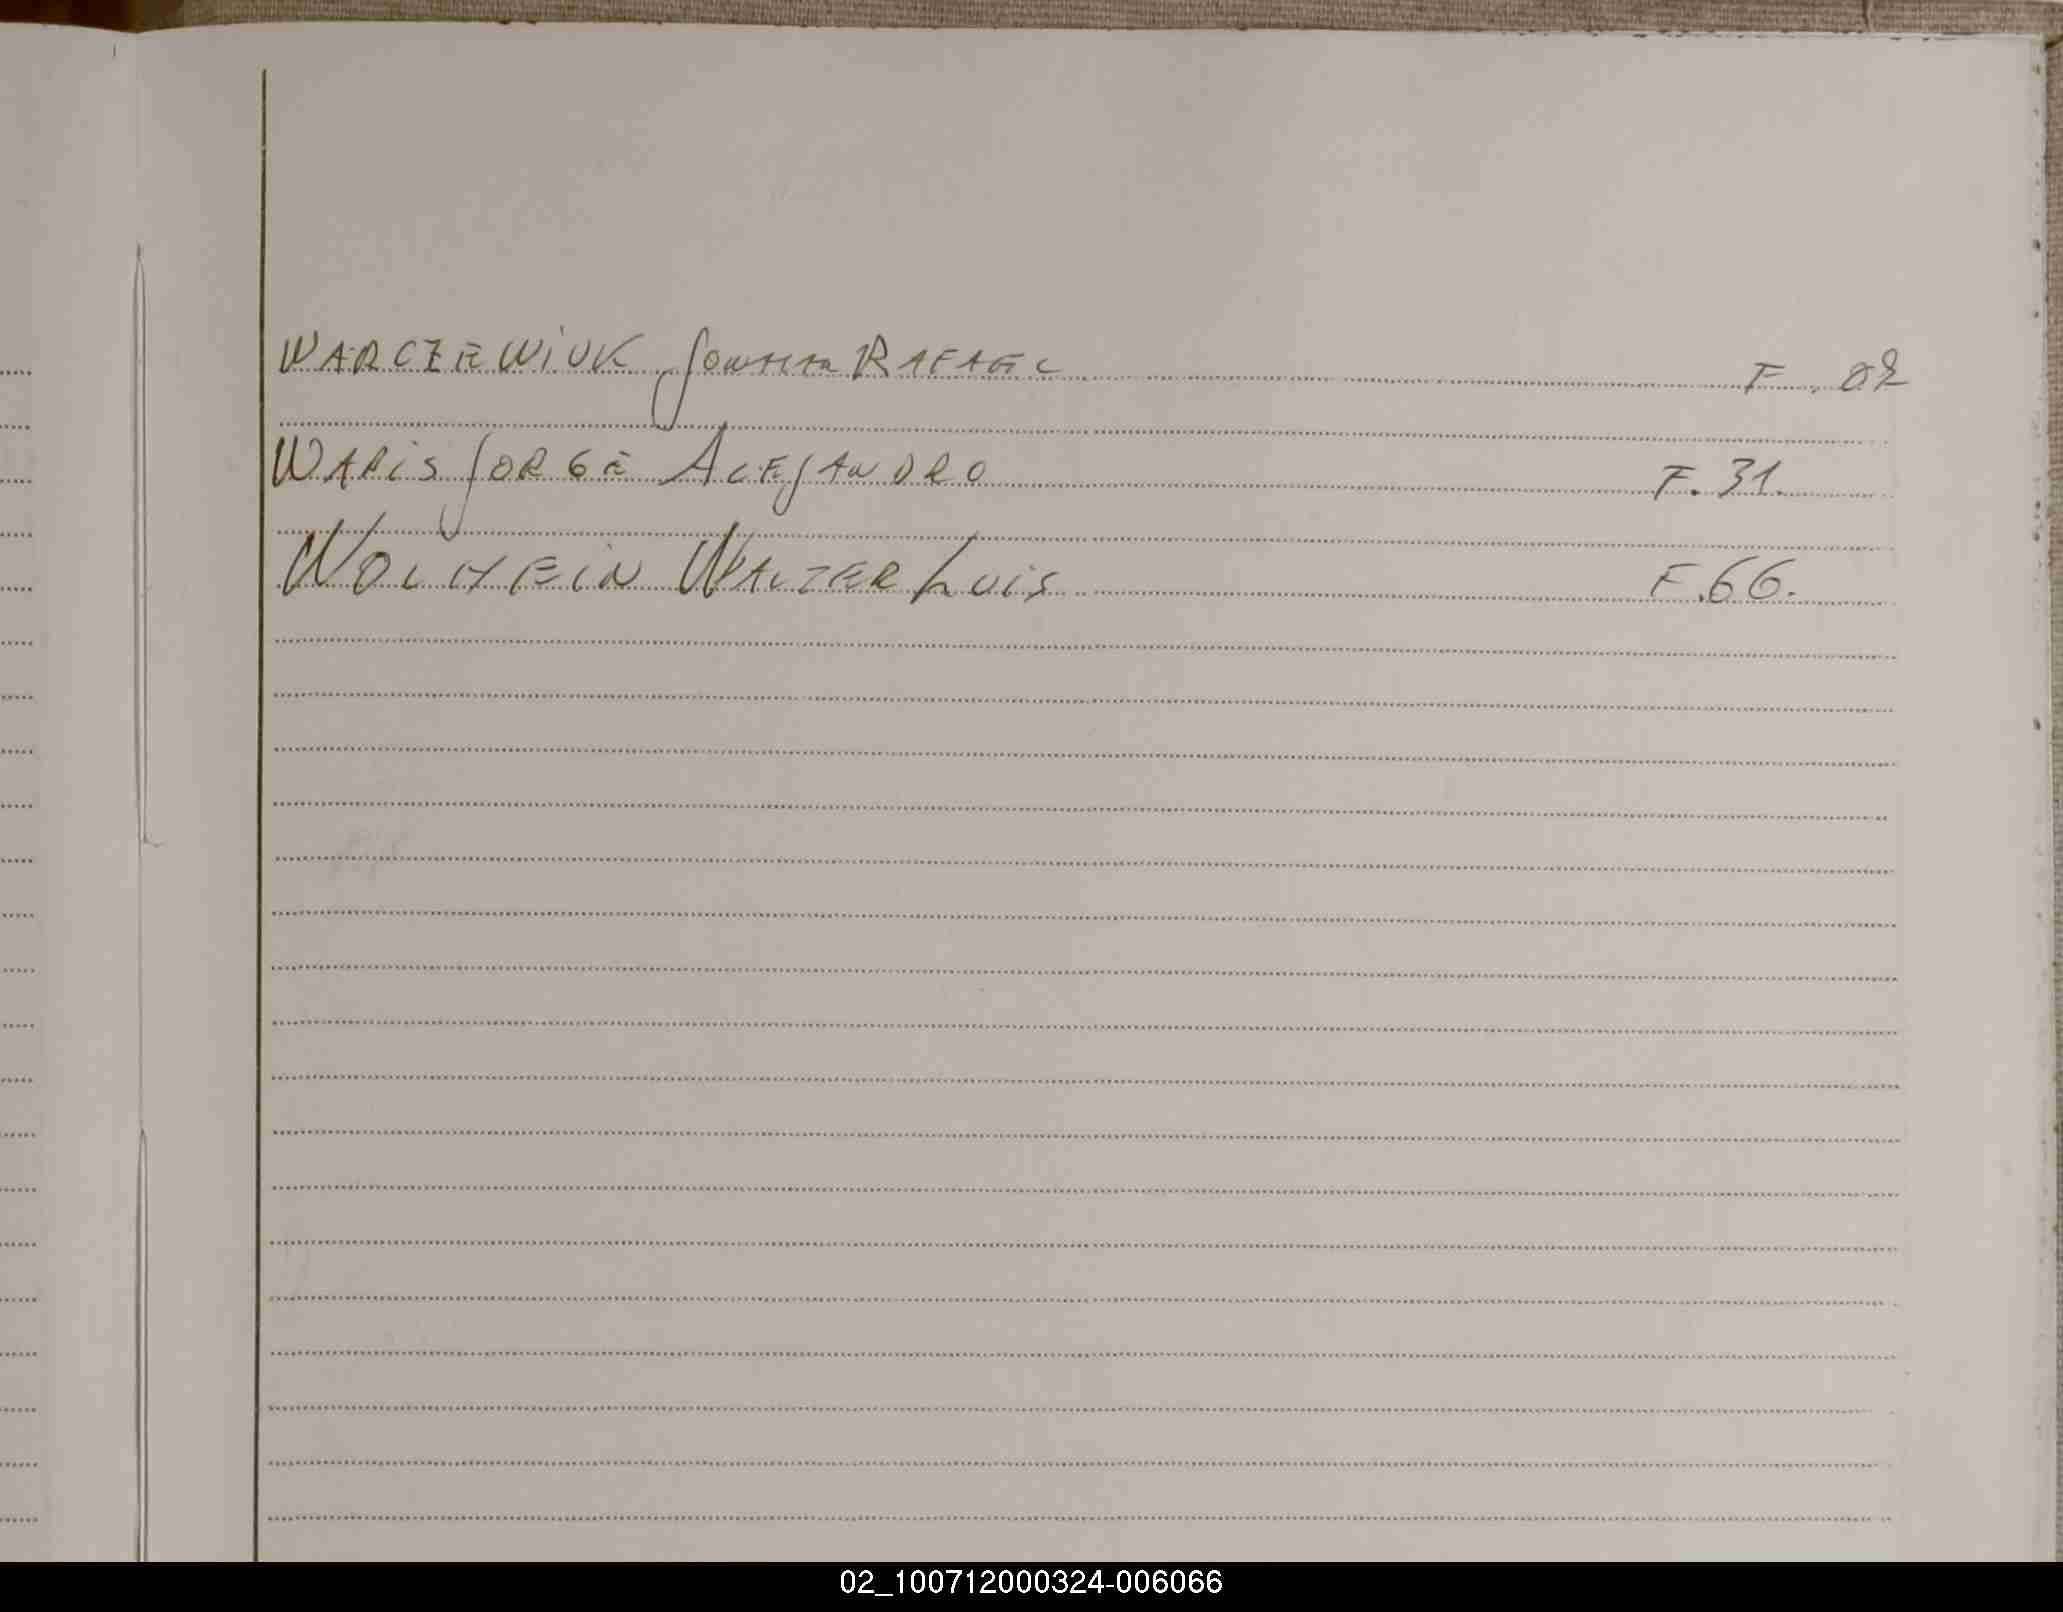 WARCZEWIUK JONATAN RAFAEL F. 02
WARIS JORGE ALEJANDRO F. 31.
WOLHEIN WALTER LUIS F. 66.
02_100712000324-006066